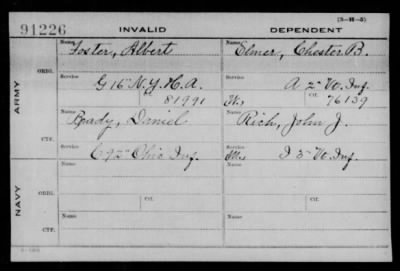 (3-H-5)
91226 INVALID DEPENDENT
Name Foster, Albert Name Elmer, Chester B.
ORIG.
Service G 16" N.Y.H.A. Service A 2" Vt. Inf.
81991 Ctf. 76139
ARMY
Name Brady, Daniel Name Rich, John J.
CTF.
Service C 92" Ohio Inf. Service I 3" Vt. Inf.
Name Name
ORIG.
Service Service
Ctf. Ctf.
NAVY
Name Name
CTF.
Service Service